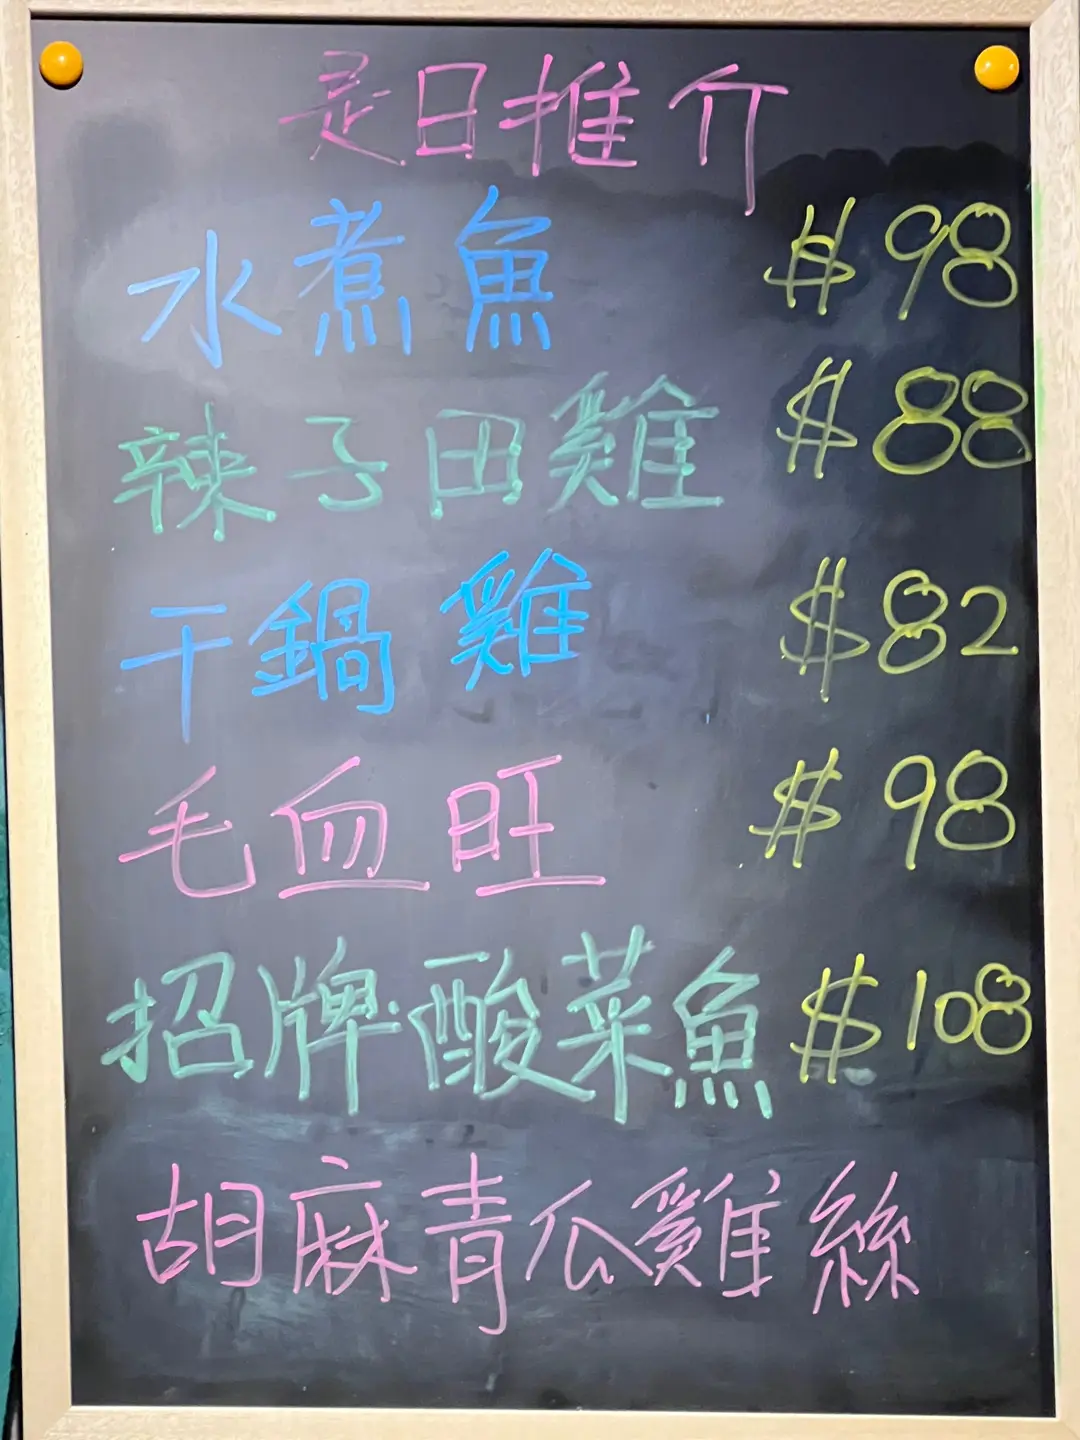 是日推介
水煮魚 $98
辣子田雞 $88
干鍋雞 $82
毛血旺 $98
招牌酸菜魚 $108
胡麻青瓜雞絲